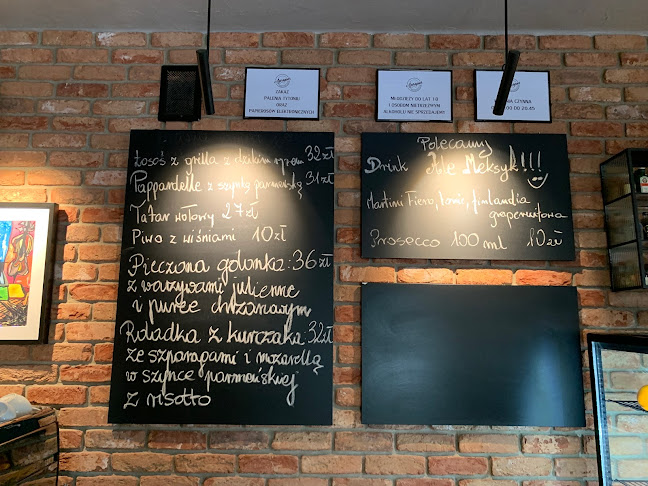 ZAKAZ
PALENIA TYTONIU
ORAZ
PAPIEROSÓW ELEKTRONICZNYCH
MŁODZIEŻY DO LAT 18
I OSOBOM NIETRZEŹWYM
ALKOHOLU NIE SPRZEDAJEMY
CZYNNA
DO 20:45
Łosoś z grilla z dzikim ryżem 32zł
Pappardelle z szynką parmeńską 31zł
Tatar wołowy 27zł
Piwo z wiśniami 10zł
Pieczona golonka: 36zł
z warzywami julienne
i puree chrzanowym
Roladka z kurczaka 32zł
ze szparagami i mozarellą
w szynce parmeńskiej
z risotto
Polecamy
Drink Ale Meksyk!!!
Martini Fiero, tonic, finlandia
grapefruitowa
Prosecco 100 ml 10zł